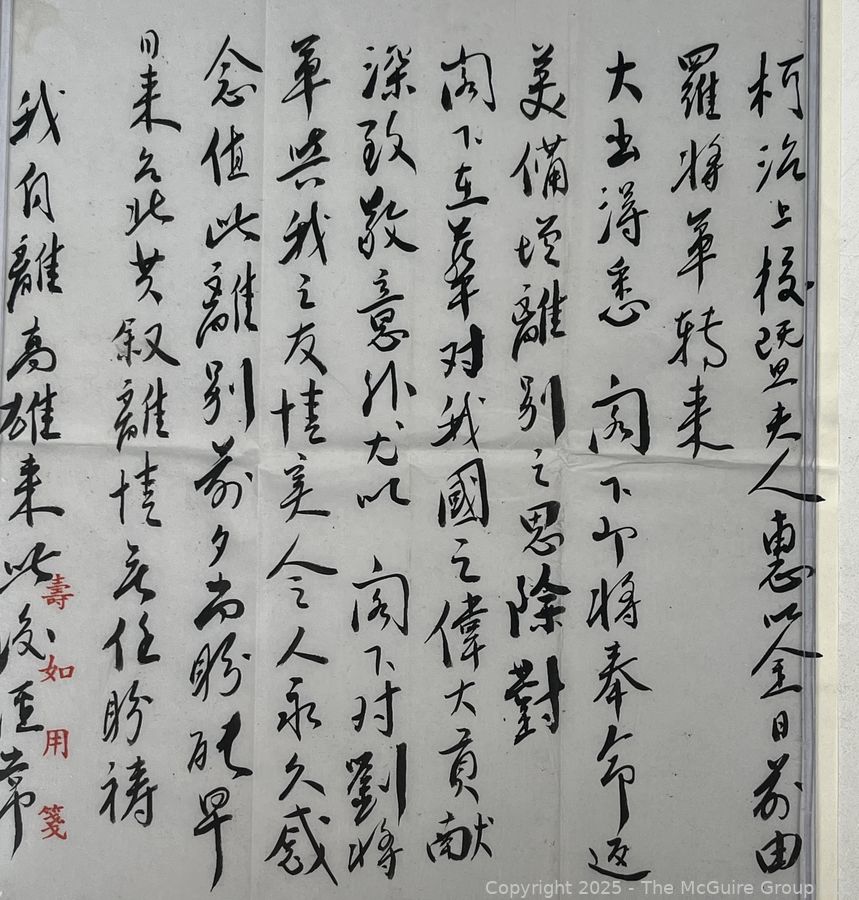 柯治上校暨夫人惠鉴日前由
羅將軍转来
大函得悉 阁下即將奉命返
美備增離別之思除對
阁下在華对我國之偉大貢献
深致敬意外尤以 阁下对劉將
軍與我之友情实令人永久感
念值此離別前夕尚盼能早
日来台北共叙離情無任盼祷
我自離高雄来此後經常
壽如用箋
Copyright 2025 - The McGuire Group